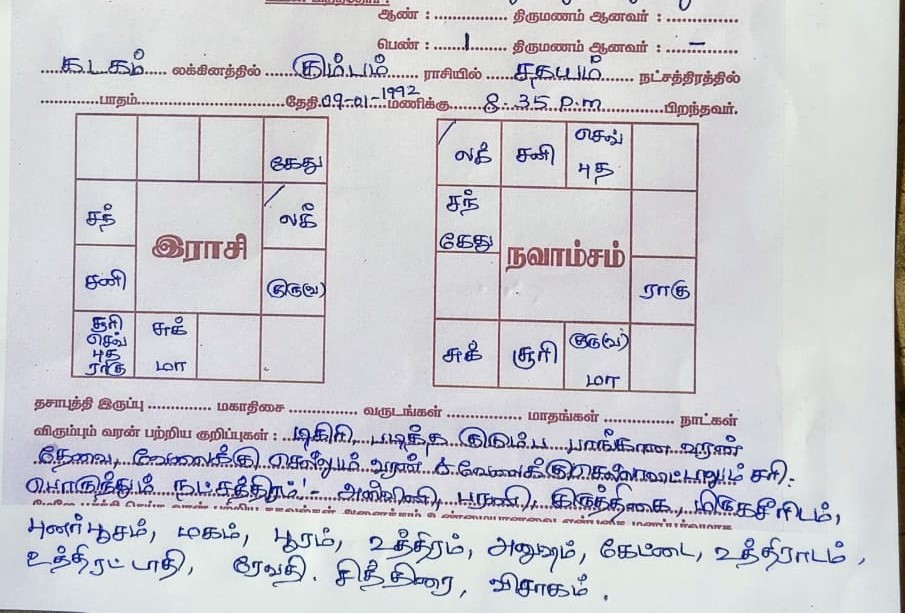 ஆண் : ................. திருமணம் ஆனவர் : .............
பெண் : ......1....... திருமணம் ஆனவர் : ......–......
....கடகம்..... லக்கினத்தில் ......கும்பம்...... ராசியில் .....சதயம்...... நட்சத்திரத்தில்
............பாதம்..................தேதி.09-01-1992 மணிக்கு......8.35 P.m..............பிறந்தவர்.
கேது
சந்
லக்
இராசி
சனி
குரு(வ)
சூரி
செவ்
புத
ராகு
சுக்
மா
லக்
சனி
செவ்
புத
சந்
கேது
நவாம்சம்
ராகு
சுக்
சூரி
குரு(வ)
மா
தசாபுத்தி இருப்பு ............. மகாதிசை .............. வருடங்கள் ............... மாதங்கள் ............ நாட்கள்
விரும்பும் வரன் பற்றிய குறிப்புகள் : டிகிரி படித்த குடும்ப பாங்கான வரன்
தேவை, வேலைக்கு செல்லும் வரன் & வேலைக்கு செல்லாவிட்டாலும் சரி.
பொருந்தும் நட்சத்திரம்:- அஸ்வினி, பரணி, கிருத்திகை, மிருகசீரிடம்,
புனர்பூசம், மகம், பூரம், உத்திரம், அனுஷம், கேட்டை, உத்திராடம்,
உத்திரட்டாதி, ரேவதி. சித்திரை, விசாகம்.